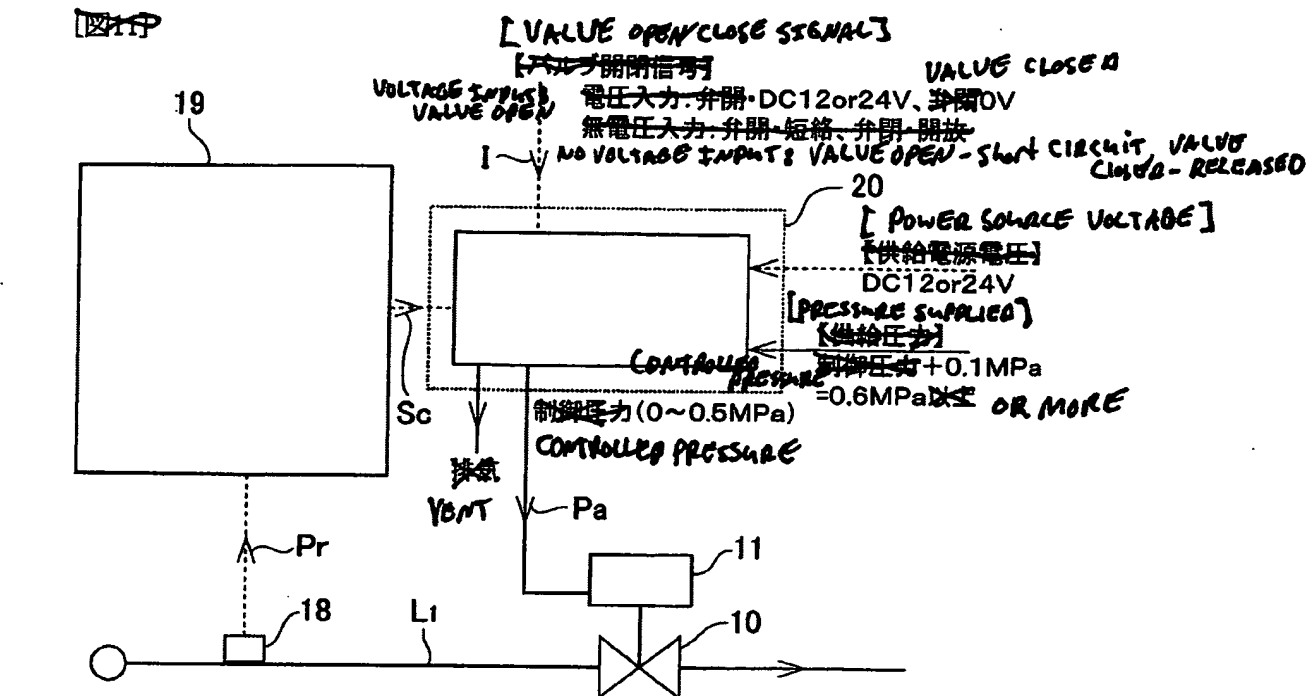 [図11]
[VALUE OPEN/CLOSE SIGNAL]
【バルブ開閉信号】
VALUE CLOSED
VOLTAGE INPUT:
VALUE OPEN
電圧入力:弁開・DC12or24V、弁閉0V
無電圧入力:弁開・短絡、弁閉・開放
I
NO VOLTAGE INPUT: VALUE OPEN - Short CIRCUIT, VALUE
CLOSED - RELEASED
19
20
[POWER SOURCE VOLTAGE]
【供給電源電圧】
DC12or24V
[PRESSURE SUPPLIED]
【供給圧力】
CONTROLLED
PRESSURE
制御圧力+0.1MPa
=0.6MPa以上 OR MORE
Sc
制御圧力(0~0.5MPa)
CONTROLLED PRESSURE
排気
VENT
Pa
Pr
11
18
L1
10